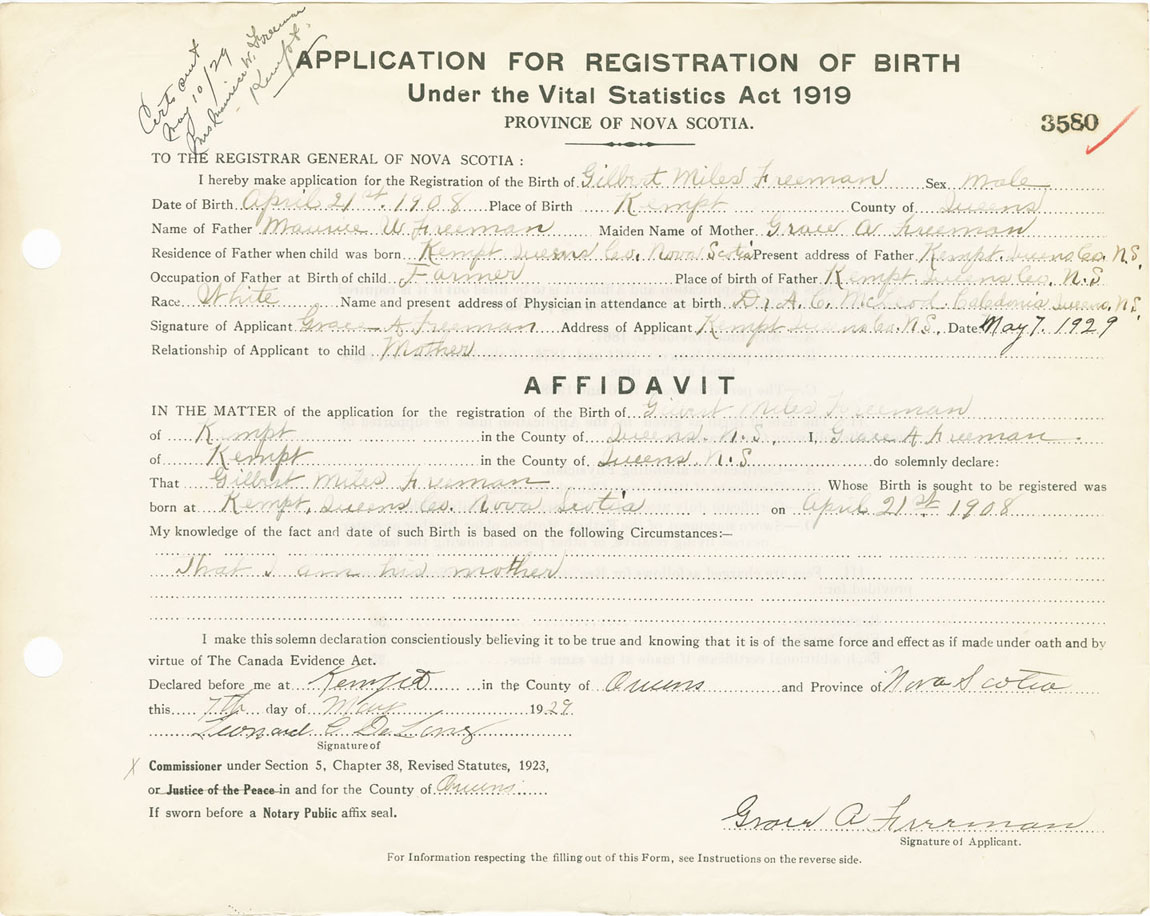 Cert. out
May 10/29
Mrs Maurice W. Freeman
Kempt.
APPLICATION FOR REGISTRATION OF BIRTH
Under the Vital Statistics Act 1919
PROVINCE OF NOVA SCOTIA.
3580
TO THE REGISTRAR GENERAL OF NOVA SCOTIA :
I hereby make application for the Registration of the Birth of Gilbert Miles Freeman Sex Male
Date of Birth April 21st. 1908 Place of Birth Kempt County of Queens
Name of Father Maurice W Freeman Maiden Name of Mother Grace A Freeman
Residence of Father when child was born Kempt Queens Co. Nova Scotia Present address of Father Kempt. Queens Co. N.S.
Occupation of Father at Birth of child Farmer Place of birth of Father Kempt. Queens Co. N.S
Race White Name and present address of Physician in attendance at birth Dr. A. C. McLeod. Caledonia Queens. N.S.
Signature of Applicant Grace A Freeman Address of Applicant Kempt Queens Co. N.S. Date May 7. 1929
Relationship of Applicant to child Mother
AFFIDAVIT
IN THE MATTER of the application for the registration of the Birth of Gilbert Miles Freeman
of Kempt in the County of Queens. N.S. I, Grace A Freeman.
of Kempt in the County of Queens. N.S do solemnly declare:
That Gilbert Miles Freeman Whose Birth is sought to be registered was
born at Kempt, Queens Co. Nova Scotia on April 21st 1908
My knowledge of the fact and date of such Birth is based on the following Circumstances:—
That I am his mother
I make this solemn declaration conscientiously believing it to be true and knowing that it is of the same force and effect as if made under oath and by
virtue of The Canada Evidence Act.
Declared before me at Kempt in the County of Queens and Province of Nova Scotia
this 7th day of May 1929
Leonard C De Long
Signature of
X Commissioner under Section 5, Chapter 38, Revised Statutes, 1923,
or Justice of the Peace in and for the County of Queens
If sworn before a Notary Public affix seal.
Grace A Freeman
Signature of Applicant.
For Information respecting the filling out of this Form, see Instructions on the reverse side.